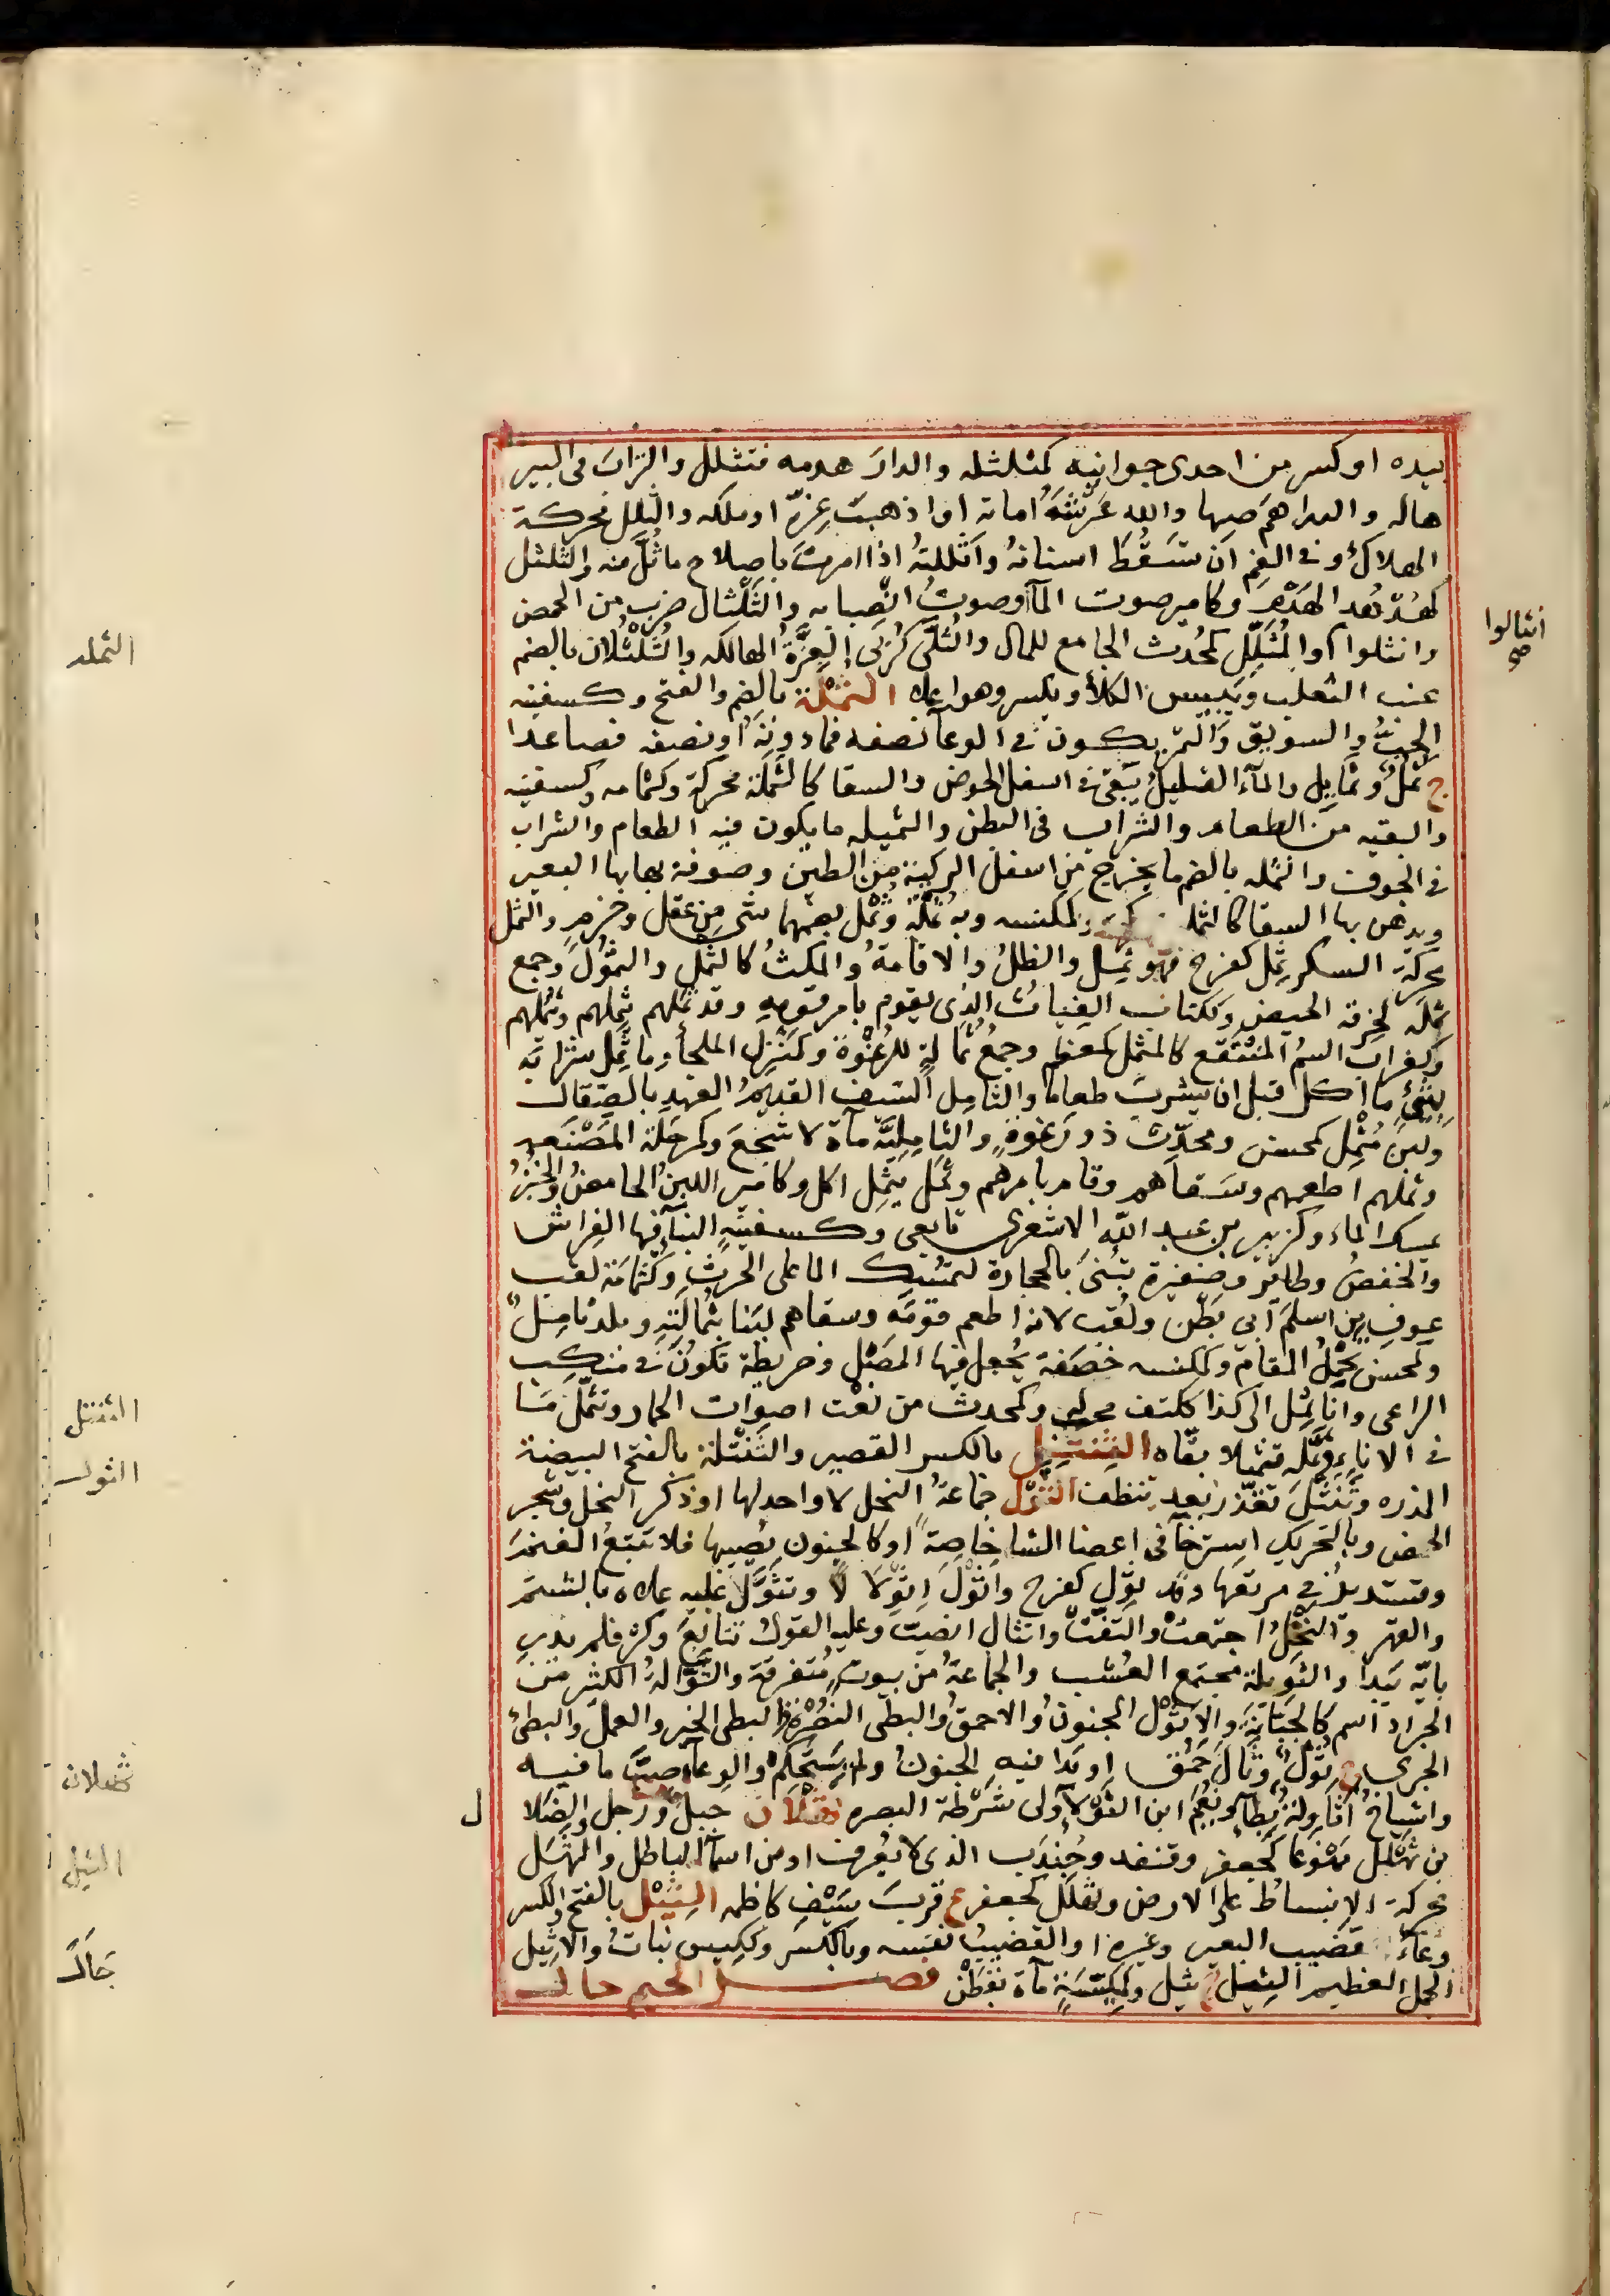 بيده او كسر من احدى جوانبه كمثلثله والدار هدمه فتثلل والتراب فى البير
هاله والدراهم صبها والله عَرْشَهُ اماته او اذهب عزّه او ملكه والثلل محركة
الهلاك و فى الفم ان تسقط اسنانه واثللتهُ اذا امرت باصلاح ما ثُلّ منه والثلثل
كهدهد الهَدْم وكامير صوت المآ او صوت انصبابه والثَلْثال ضرب من الحمض
وانثلوا والمُثَلِّل كمُحدث الجامع للمال والثُلّى كرُبّى العِزَّةُ الهالكه والثُلْثُلان بالضم
عنب الثعلب ويَبِيس الكلأ ويكسر وهو اعلا الثملة بالضم والفتح وكسفينه
الحبُّ والسويق والتمر يكون فى الوعآ نصفه فما دونه او نصفه فصاعدا
ج ثُمَل وثمايل والمآء القليل يبقى فى اسفل الحوض والسقا كالثملة محركة وكثمامه وكسفينه
والبقيه من الطعام والشراب فى البطن والثميله ما يكون فيه الطعام والشراب
فى الجوف والثمله بالضم ما يخرج من اسفل الركية من الطين وصوفة يهنا بها البعير
ويدهن بها السقا كالثمله وكمكنسه وبه ثملة وثُمْل بضمها شى من عقل وحزم والثمل
محركة السكر ثمِل كفرح فهو ثمِل والظل والاقامة والمكث كالثَمْل والثمول وجمع
ثملَه لخرقة الحيض وككتاب الغياث الذى يقوم بامر قومه وقد ثملهم يَثْمِلهم ويَثْمُلهم
وكغراب السم المُنْقَع كالمثمل كمعظم وجمعُ ثُمالةٍ للرُغْوَة وكمَنْزِل الملجأ وما ثَمَل شرابه
بشىء ما اكل قبل ان يشرب طعاما والثامل السيف القديم العهد بالصِقال
ولبن مُثْمِل كمحسن ومحدِّث ذو رَغوةٍ والثامِلِيَّة مآة لاشجعَ وكمرحَلَة المَصْنَعه
وثملهم اطعمهم وسقاهم وقام بامرهم وثَمَل يثْمِل اكل وكامير اللبن الحامض والخبز
يمسك الماء وكزبير بن عبد الله الاشعرى تابعى وكسفينة البنآ فيها الفراش
والخفض وطاير وصغيرة تُبنى بالحجارة لتمسك الما على الحرث وكثُمامَة لقب
عوف بن اسلم ابى بَطْن ولقب لانه اطعم قومَه وسقاهم لبنا بثُمالَته وبلد ثامِل
وكمحسن يحْمِل المقام وكمكنسه خصفة يُجعل فيها المَصْل وخريطة تكون فى منكب
الراعى وانا ثَمِل الى كذا ككتف محب وكمحدث من نعْت اصوات الحمار وتثمّل ما
فى الاناء وثَمّله تثميلا بقّاه الثِنْتِل بالكسر القصير والثَنْتَلة بالفتح البيضة
المذره وتَنَثْتَل تقذّر بعد تنظف الثَوْل جماعة النحل لا واحد لها او ذكر النحل وشجر
الحمض وبالتحريك استرخآ فى اعضا الشا خاصة او كالجنون يصيبها فلا تتبع الغنم
وتستدير فى مرتعها وقد ثوِل كفرح واثْوَلّ اثْوِلالاً وتثوَّل عليه علاه بالشتم
والقهر والنَحْلُ اجتمعت والتفّت وانثال انصب وعليه القول تتابع وكثر فلم يدر
بايّه يَبدا والثويلة مجتمع العُشب والجماعة من بيوت متفرقة والثَوّالةُ الكثير من
الجراد اسم كالجَبّانة والاثول المجنون والاحمق والبطى النُصْرة والبطى الخير والعمل والبطئ
الجرى ج ثُوْل وثال حَمُق او بدا فيه الجنون ولم يستحكم والوعآ صبّ ما فيه
واشياخ اثاوِلة بِطآ ونجم ابن الثول ولى شرطة البصره ثهلان جبل ورجل والضلا
بن ثَهْلل ممنوعا كجعفر وقنفد وجُنْدَب الذى لا يُعرف او من اسمآ الباطل والثهَل
محركة الانبساط على الارض وثهلل كجعفر ع قرب سَيْف كاظمه الثِيْل بالفتح والكسر
وعآء قضيب البعير وغيره او القضيب نفسه وبالكسر وككيس نبات والاثيل
الجمل العظيم الثيل ج ثيل وكَكَيِّسَةٍ مآة بقَطَن فصل الجيم جال
انثالوا
صح
الثمله
الثنتل
الثول
ثهلان
ل
الثيل
جَال